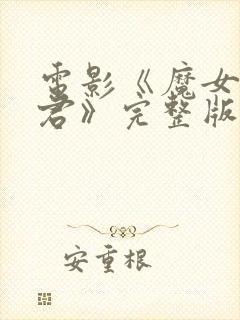 电影《魔女
君》完整版
安重根